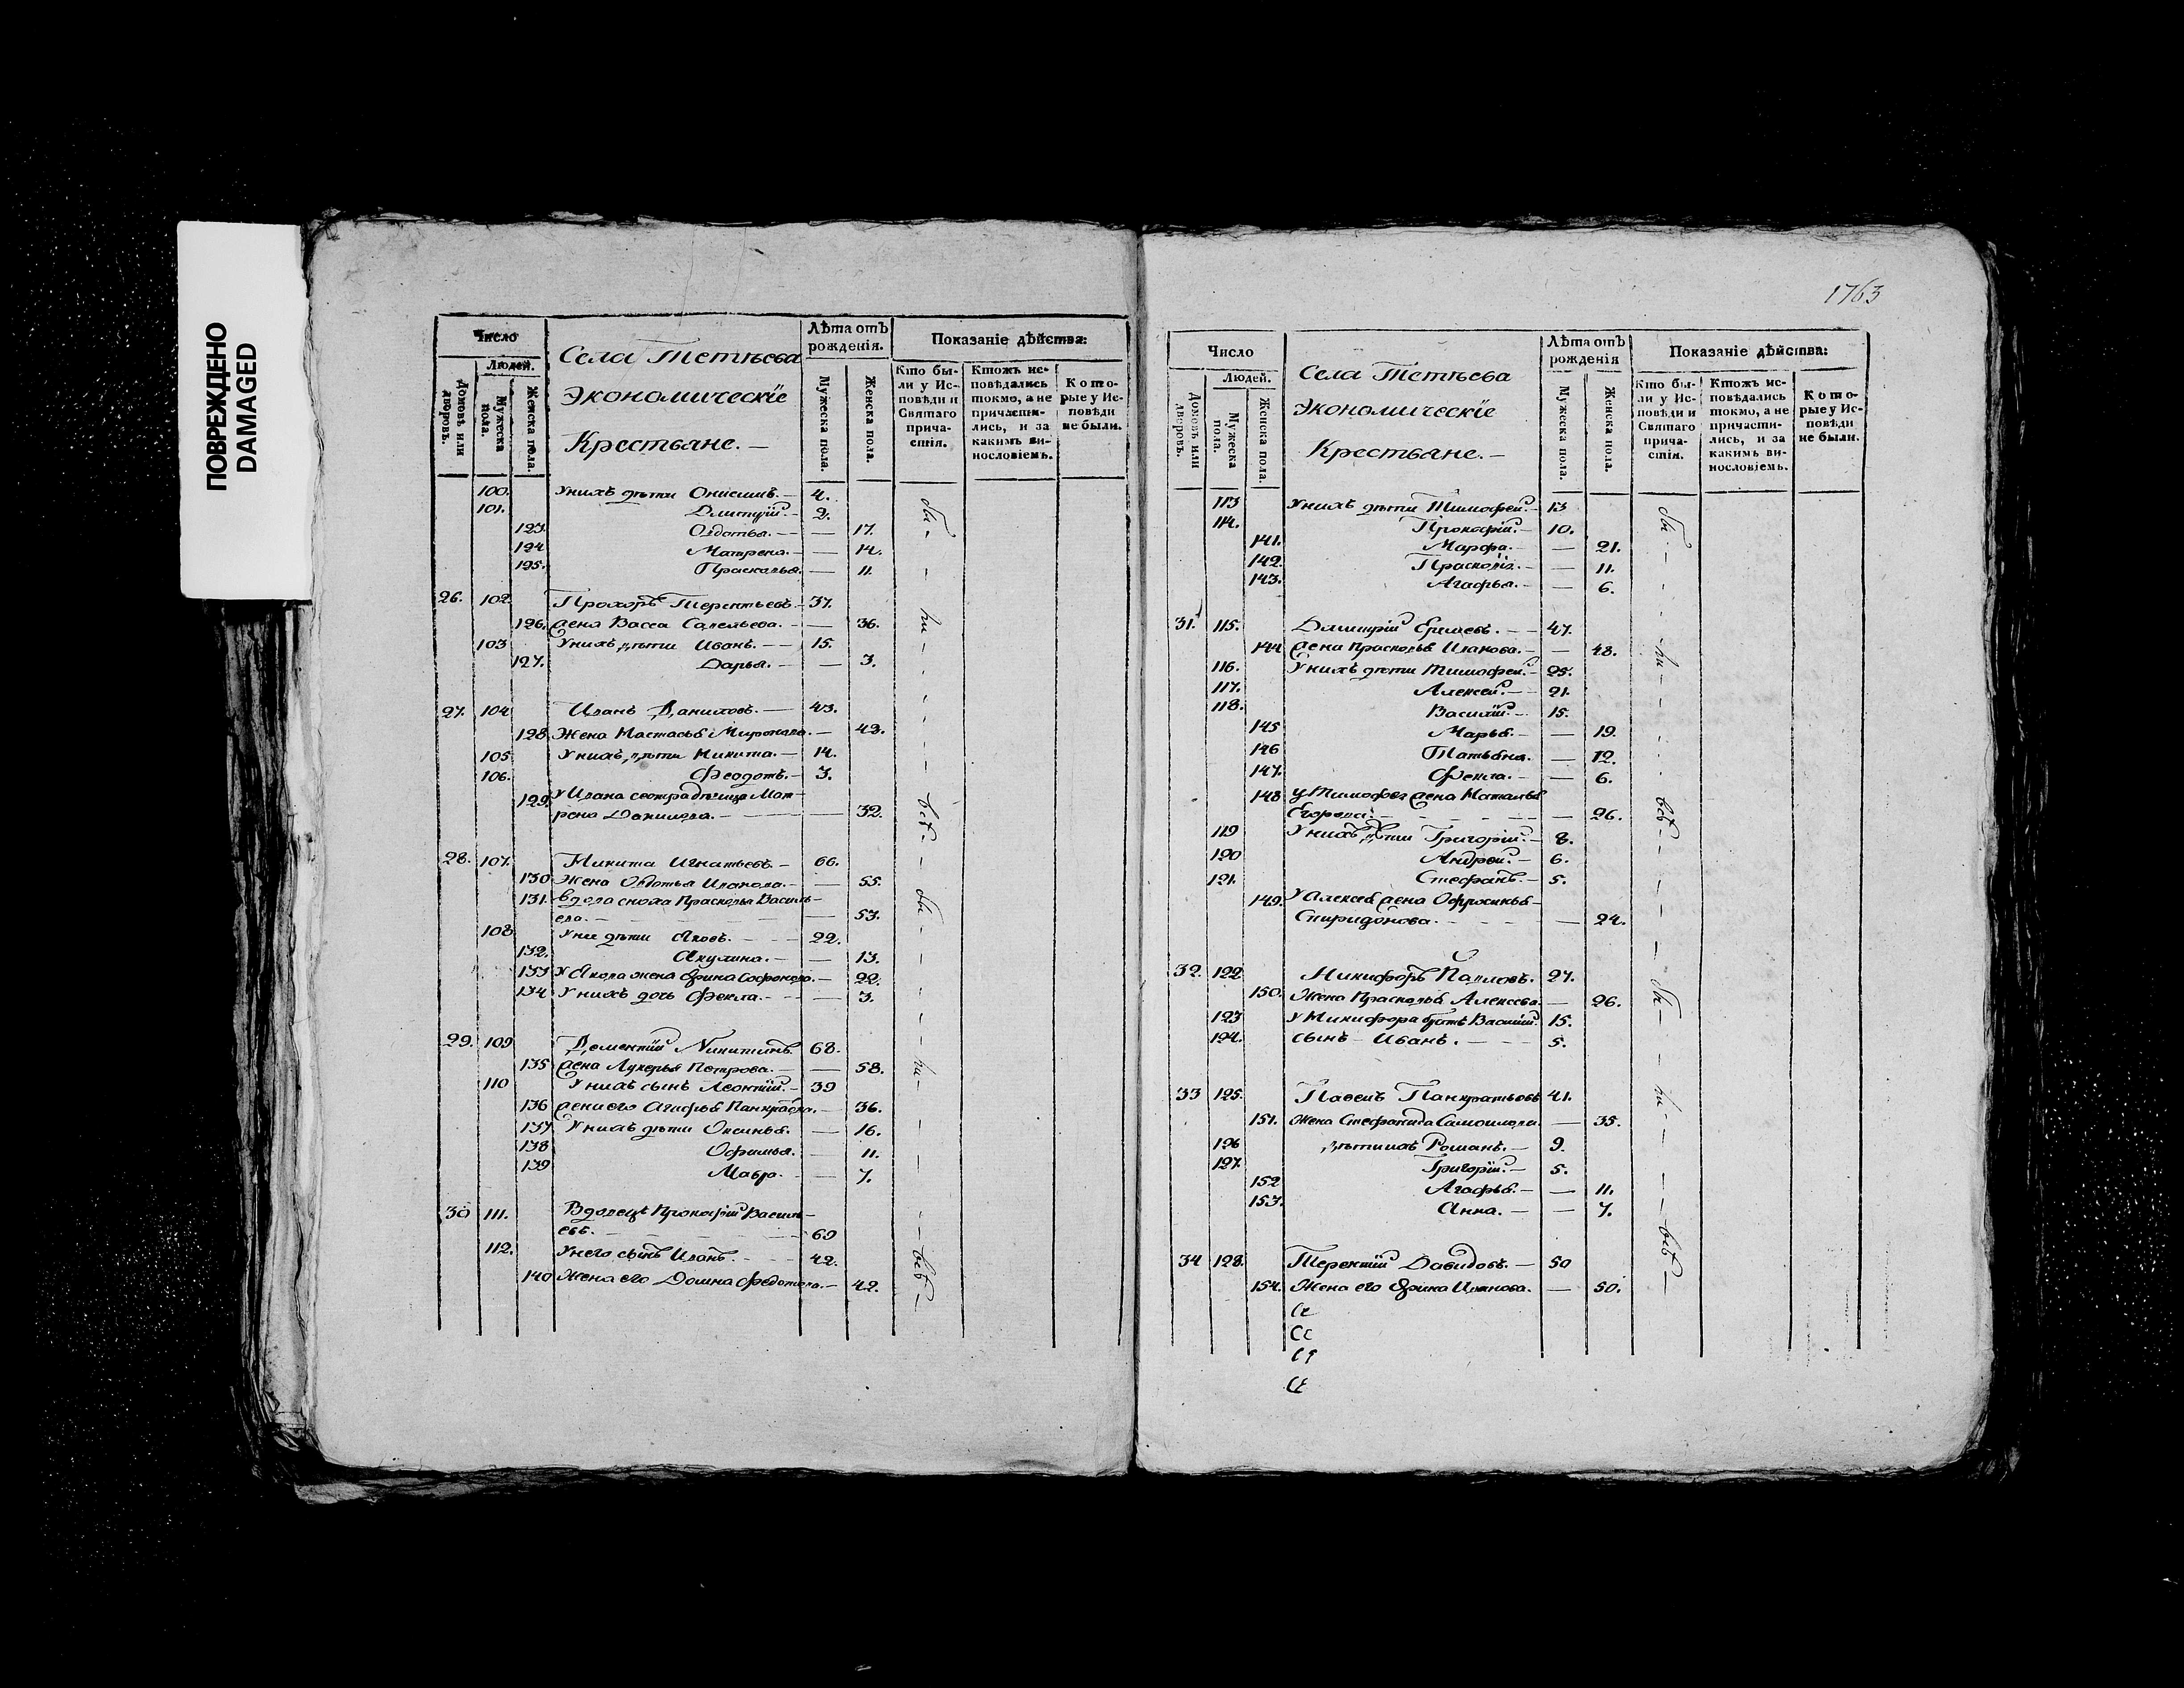 ПОВРЕЖДЕНО
DAMAGED
Число
Людей.
Домовъ или дворовъ.
Мужеска пола.
Женска пола.
Села Тетѣева
Экономическïе
Крестьяне. —
Лѣта отъ рожденія.
Мужеска пола.
Женска пола.
Показаніе дѣйства:
Кто бы-
ли у Ис-
повѣди и
Святаго
прича-
стія.
Ктожъ ис-
повѣдались
токмо, а не
причасти-
лись, и за
какимъ ви-
нословіемъ.
Кото-
рые у Ис-
повѣди
не были.
100. Унихъ дѣти Онисимъ. — 4.
101. Дмитрïй. — 2.
123. Овдотья. — — 17.
124 Матрена. — — 14.
125. Прасковья. — 11.
26. 102. Прохоръ Терентьевъ. — 37.
126. жена Васса Савельева. — — 36.
103 Унихъ дѣти Иванъ. — — 15.
127. Дарья. — — 3.
27. 104 Иванъ Даниловъ. — 43.
128. Жена Настасья Миронова. — 42.
105 Унихъ дѣти Никита. — 14.
106. Феодотъ. — 3.
129. У Ивана сестра дѣвица Мат-
рена Данилова. — — 32.
28. 107. Никита Игнатьевъ. — 66.
130 Жена Овдотья Иванова. — — 55.
131. вдова сноха Прасковья Василь-
ева. — — 53.
108 Унее дѣти Яковъ. — 22.
132. Акулина. — — 13.
133 У Якова жена Ѳрина Софонова. — 22.
134 Унихъ дочь Фекла. — — 3.
29. 109 Дементïй Никитинъ. 68.
135 жена Лукерья Петрова. — — 58.
110 Унихъ сынъ Леонтïй. — 39
136 жена его Агафья Панкратова. — 36.
137 Унихъ дѣти Оксинья. — 16.
138 Офимья. — 11.
139 Мавра. — 7.
30 111. Вдовецъ Прокофïй Василь-
евъ. — 69
112. Унего сынъ Иванъ. — 42.
140 Жена его Домна Федотова. — 42.
бы-
ли-
всѣ-
бы-
ли-
всѣ-
1763
Число
Людей.
Домовъ или дворовъ.
Мужеска пола.
Женска пола.
Села Тетѣева
Экономическïе
Крестьяне. —
Лѣта отъ рожденія
Мужеска пола.
Женска пола.
Показаніе дѣйства:
Кто бы-
ли у Ис-
повѣди и
Святаго
прича-
стія.
Ктожъ ис-
повѣдались
токмо, а не
причасти-
лись, и за
какимъ ви-
нословіемъ.
Кото-
рые у Ис-
повѣди
не были.
113 Унихъ дѣти Тимофей. — 13
114. Прокофïй. — 10.
141. Марфа. — 21.
142. Прасковïя. — — 11.
143. Агафья. — — 6.
31. 115. Дмитрïй Ершевъ. — — 47.
144 жена Прасковья Иванова. — — 48.
116. Унихъ дѣти Тимофей. — 25.
117. Алексей. — 21.
118. Василïй. — 15.
145 Марья. — — 19.
146 Татьяна. — 12.
147. Фекла. — — 6.
148 у Тимофея жена Наталья
Егорова. — — 26.
119 Унихъ дѣти Григорïй. — 8.
120 Андрей. — 6.
121. Стефанъ. — 5.
149. У Алексея жена Офросинья
Спиридонова. — — 24.
32. 122 Никифоръ Павловъ. 27.
150. Жена Прасковья Алексеева. — 26.
123 У Никифора братъ Василïй. 15.
124. сынъ Иванъ. — 5.
33 125. Павелъ Панкратьевъ 41.
151. Жена Стефанида Самойлова. — 35.
126 дѣти ихъ Романъ. — 9.
127. Григорïй. — 5.
152 Агафья. — — 11.
153. Анна. — — 7.
34 128. Терентïй Давидовъ. — 50
154. Жена его Ѳрина Иванова. — 50.
бы-
ли-
всѣ-
бы-
ли-
всѣ-